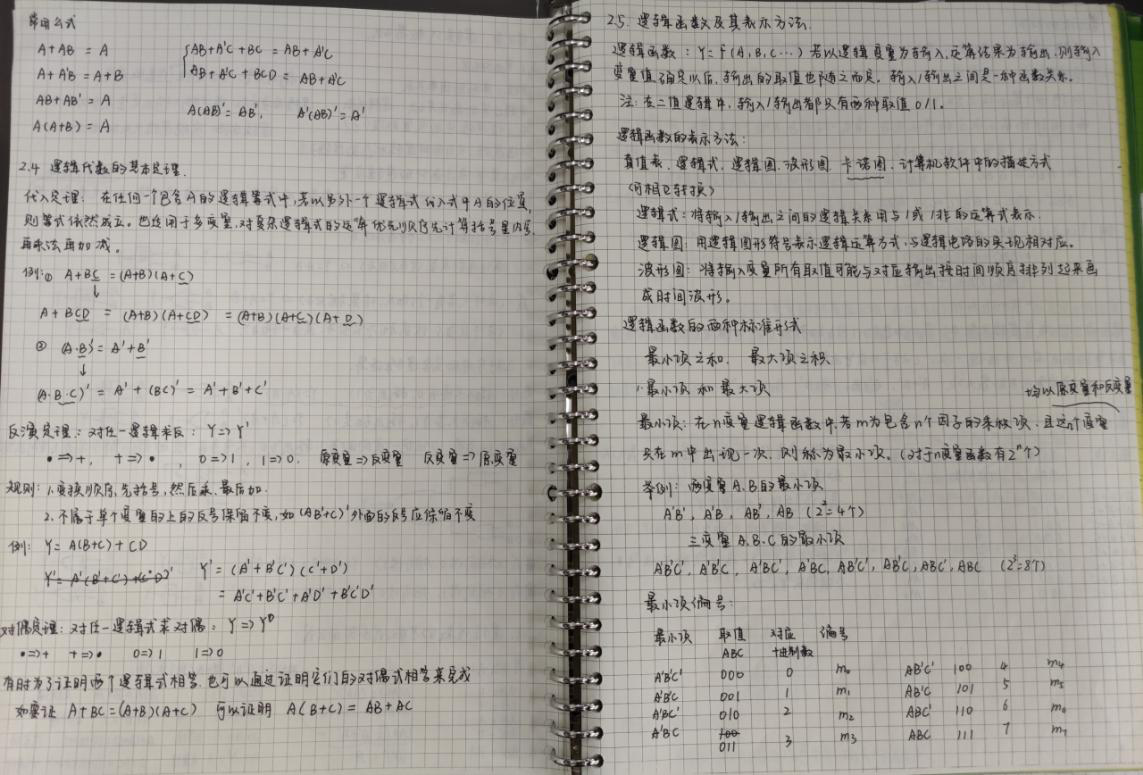 常用公式
A+AB = A
AB+A'C+BC = AB+A'C
A+A'B = A+B
AB+A'C+BCD = AB+A'C
AB+AB' = A
A(AB)' = AB', A'(AB)' = A'
A(A+B) = A
2.4 逻辑代数的基本定理.
代入定理: 在任何一个包含A的逻辑等式中,若以另外一个逻辑式代入式中A的位置,
则等式依然成立。也适用于多变量,对复杂逻辑式的运算优先顺序先计算括号里内容,
再乘法再加减。
例: ① A+BC = (A+B)(A+C)
↓
A+BCD = (A+B)(A+CD) = (A+B)(A+C)(A+D)
② (A·B)' = A'+B'
↓
(A·B·C)' = A'+(BC)' = A'+B'+C'
反演定理: 对任一逻辑求反: Y=>Y'
•=>+, +=>•, 0=>1, 1=>0. 原变量=>反变量 反变量=>原变量
规则: 1.变换顺序,先括号,然后乘,最后加.
2.不属于单个变量的上的反号保留不变,如(AB'+C)'外面的反号应保留不变
例: Y= A(B+C)+CD
Y'= (A'+B'C')(C'+D')
= A'C'+B'C'+A'D'+B'C'D'
对偶定理: 对任一逻辑式求对偶: Y=>Y^D
•=>+ +=>• 0=>1 1=>0
有时为了证明两个逻辑式相等,也可以通过证明它们的对偶式相等来完成
如要证 A+BC=(A+B)(A+C) 可以证明 A(B+C) = AB+AC
2.5 逻辑函数及其表示方法.
逻辑函数: Y= f(A,B,C…) 若以逻辑变量为输入,运算结果为输出,则输入
变量值确定以后,输出的取值也随之而定。输入/输出之间是一种函数关系.
注: 在二值逻辑中,输入/输出都只有两种取值0/1.
逻辑函数的表示方法:
真值表、逻辑式、逻辑图、波形图、卡诺图、计算机软件中的描述方式
(可相互转换)
逻辑式: 将输入/输出之间的逻辑关系用与/或/非的运算式表示.
逻辑图: 用逻辑图形符号表示逻辑运算方式,与逻辑电路的实现相对应。
波形图: 将输入变量所有取值可能与对应输出按时间顺序排列起来画
成时间波形。
逻辑函数的两种标准形式
最小项之和、最大项之积
1.最小项和最大项
均以原变量和反变量
最小项: 在n变量逻辑函数中,若m为包含n个因子的乘积项,且这n个变量
只在m中出现一次,则称为最小项。(对于n变量函数有2^n个)
举例: 两变量A、B的最小项
A'B', A'B, AB', AB (2²=4个)
三变量A.B.C的最小项
A'B'C', A'B'C, A'BC', A'BC, AB'C', AB'C, ABC', ABC (2³=8个)
最小项编号:
最小项 取值 对应 编号
ABC 十进制数
A'B'C' 000 0 m₀ AB'C' 100 4 m₄
A'B'C 001 1 m₁ AB'C 101 5 m₅
A'BC' 010 2 m₂ ABC' 110 6 m₆
A'BC 011 3 m₃ ABC 111 7 m₇